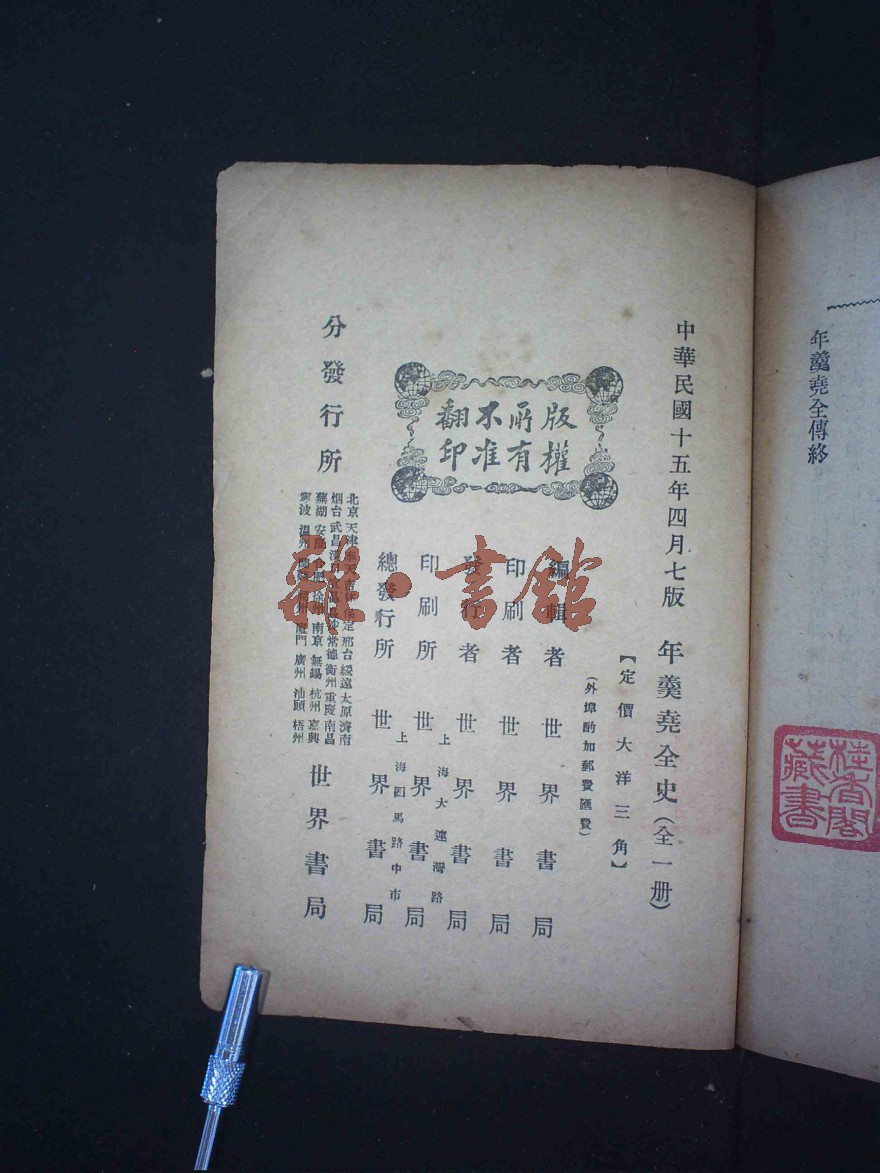 年羹堯全傳終
桂香閣
藏書
中華民國十五年四月七版
年羹堯全史（全一册）
【定價大洋三角】
（外埠酌加郵費匯費）
版權所有
不准翻印
編輯者 世界書局
印刷者 世界書局
發行者 世界書局
印刷所 上海大連灣路 世界書局
總發行所 上海四馬路中市 世界書局
分發行所
北京 天津 奉天 吉林 保定 邢台 綏遠 太原 濟南
烟台 武昌 常德 衡州 重慶 南昌
蕪湖 安慶 徐州 南京 無錫 杭州 嘉興
寧波 溫州 廈門 廣州 汕頭 梧州
世界書局
雜·書館